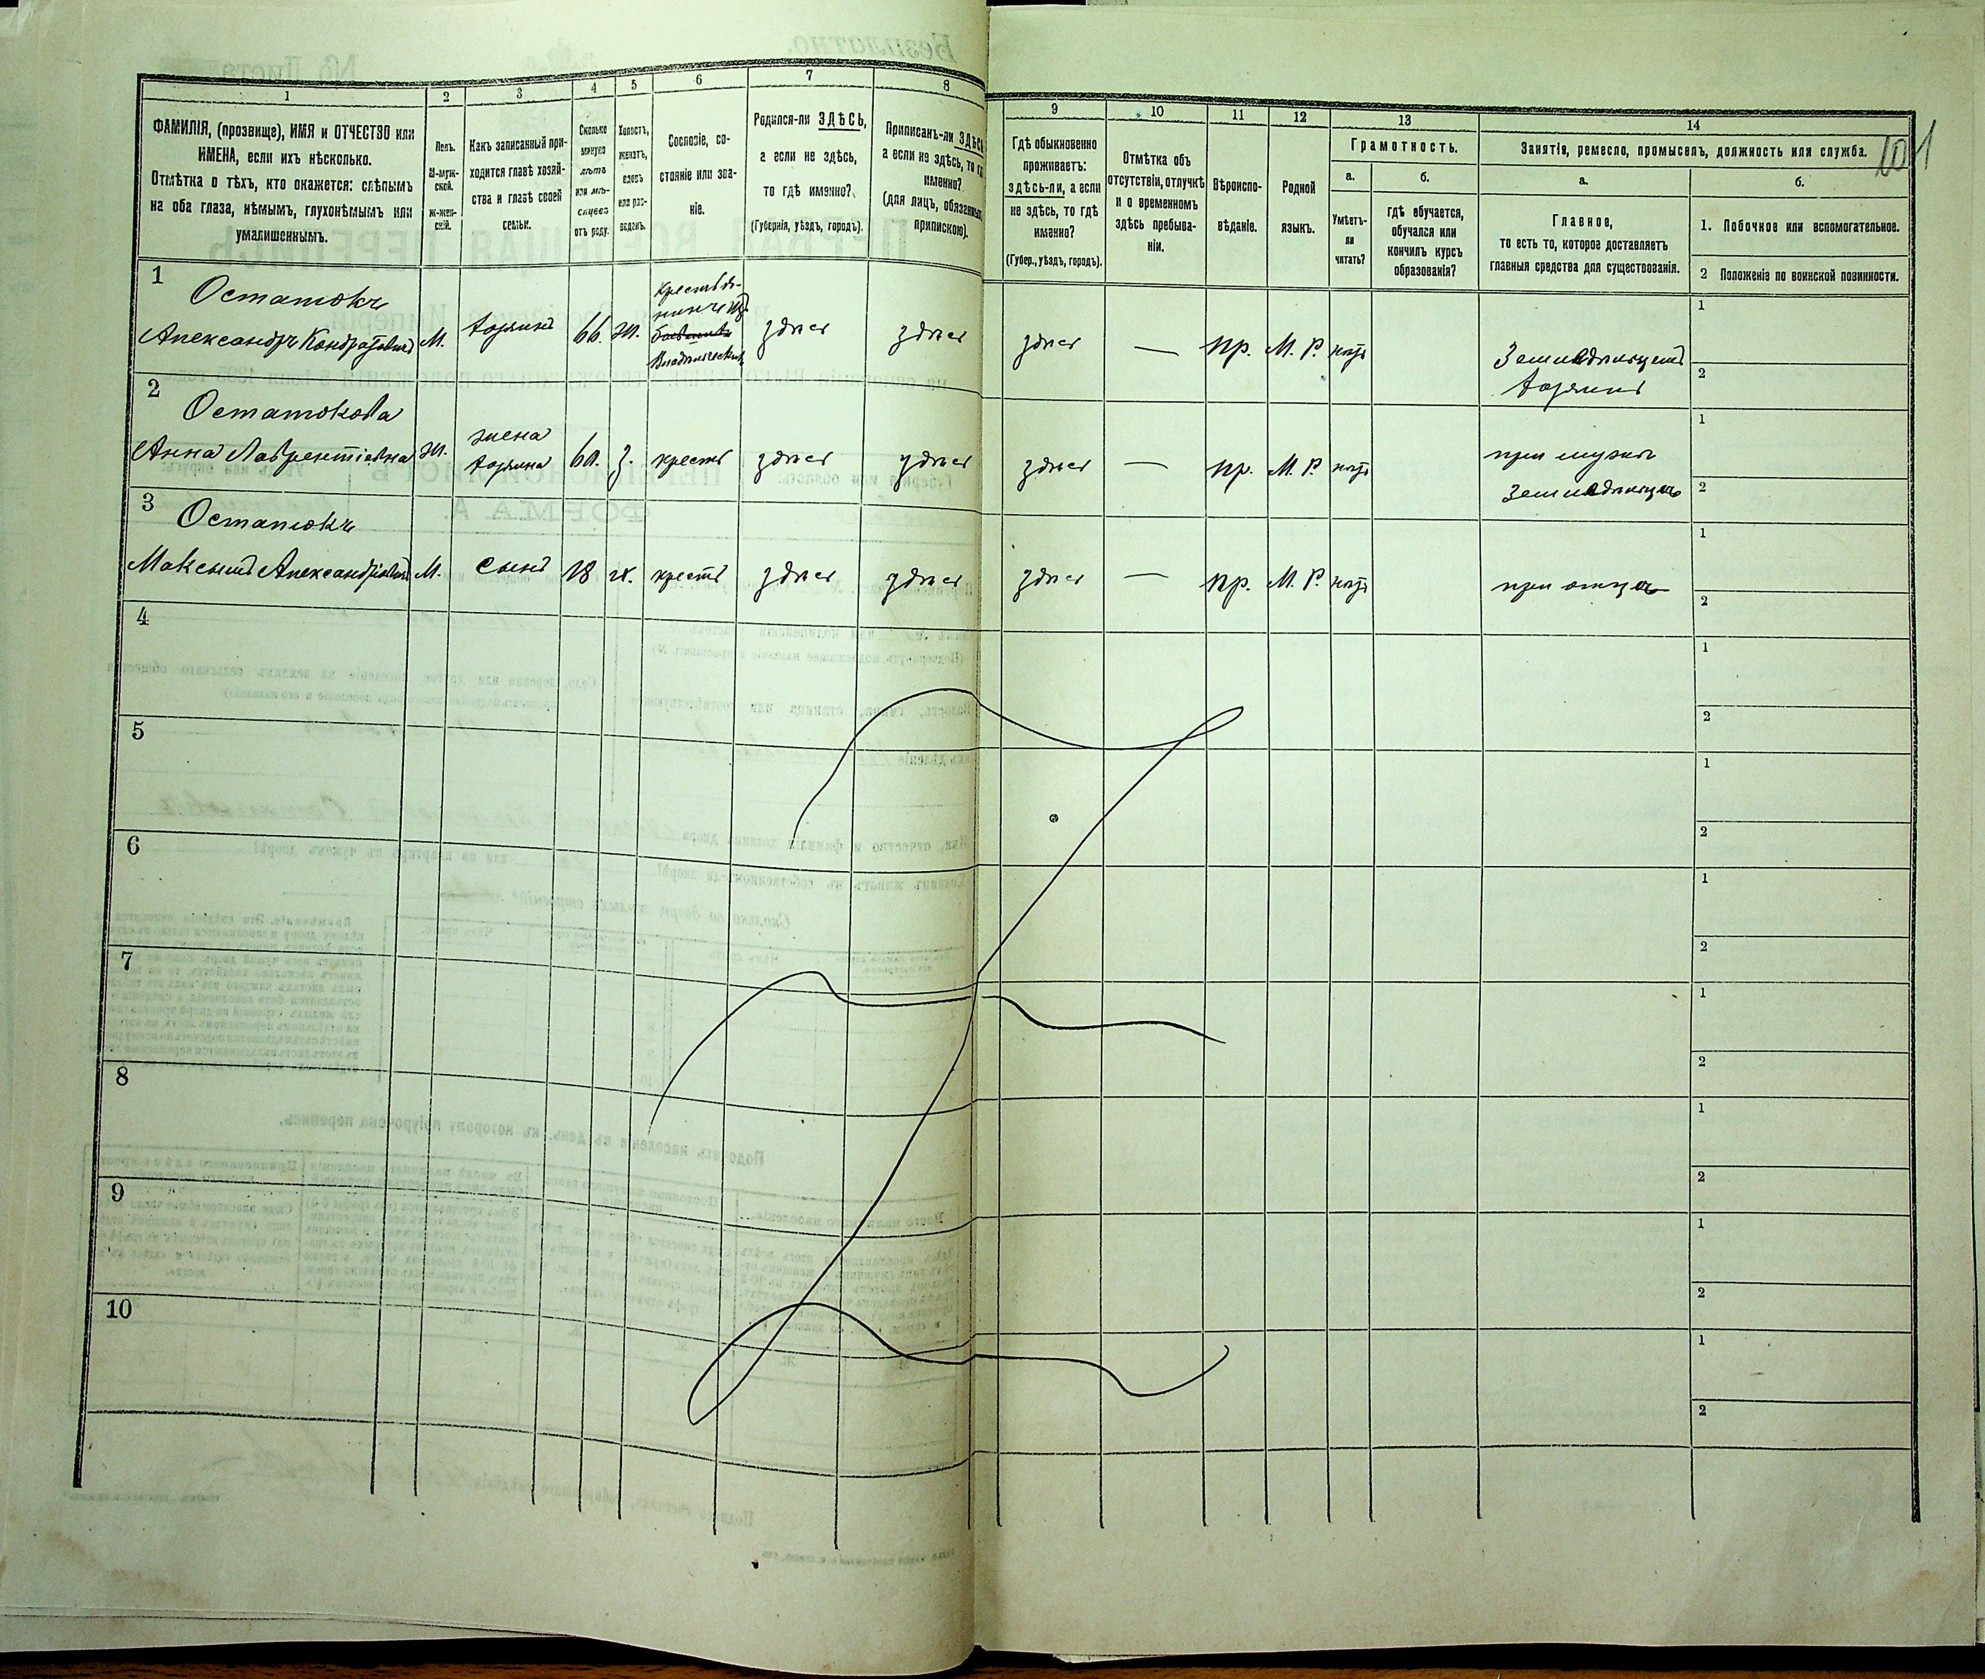 1 2 3 4 5 6 7 8 9 10 11 12 13 14
101
ФАМИЛІЯ, (прозвище), ИМЯ и ОТЧЕСТВО или
ИМЕНА, если ихъ нѣсколько.
Отмѣтка о тѣхъ, кто окажется: слѣпымъ
на оба глаза, нѣмымъ, глухонѣмымъ или
умалишеннымъ.
Полъ.
М-муж-
ской.
Ж-жен-
скій.
Какъ записанный при-
ходится главѣ хозяй-
ства и главѣ своей
семьи.
Сколько
минуло
лѣтъ
или мѣ-
сяцевъ
отъ роду.
Холостъ,
женатъ,
вдовъ
или раз-
веденъ.
Сословіе, со-
стояніе или зва-
ніе.
Родился-ли ЗДѢСЬ,
а если не здѣсь,
то гдѣ именно?
(Губернія, уѣздъ, городъ).
Приписанъ-ли ЗДѢСЬ
а если не здѣсь, то гдѣ
именно?
(для лицъ, обязанныхъ
припискою).
Гдѣ обыкновенно
проживаетъ:
здѣсь-ли, а если
не здѣсь, то гдѣ
именно?
(Губер., уѣздъ, городъ).
Отмѣтка объ
отсутствіи, отлучкѣ
и о временномъ
здѣсь пребыва-
ніи.
Вѣроиспо-
вѣданіе.
Родной
языкъ.
Грамотность.
а.
Умѣетъ-
ли
читать?
б.
гдѣ обучается,
обучался или
кончилъ курсъ
образованія?
Занятія, ремесло, промыселъ, должность или служба.
а.
Главное,
то есть то, которое доставляетъ
главныя средства для существованія.
б.
1. Побочное или вспомогательное.
2 Положеніе по воинской повинности.
1
Остатокъ
Александръ Кондратовичъ М. хозяинъ 66. ж.
здѣсь здѣсь здѣсь — пр. М. Р. нѣтъ
Земледѣлецъ
хозяинъ
1
2
2
Остатокова
Анна Лаврентіевна ж.
жена
хозяина
60. з. крест здѣсь здѣсь здѣсь — пр. М. Р. нѣтъ
при мужѣ
земледѣлцѣ
1
2
3
Остатокъ
Максимъ Александровичъ М. сынъ 18 х. крест здѣсь здѣсь здѣсь — пр. М. Р. нѣтъ
при отцѣ
1
2
4
1
2
5
1
2
6
1
2
7
1
2
8
1
2
9
1
2
10
1
2